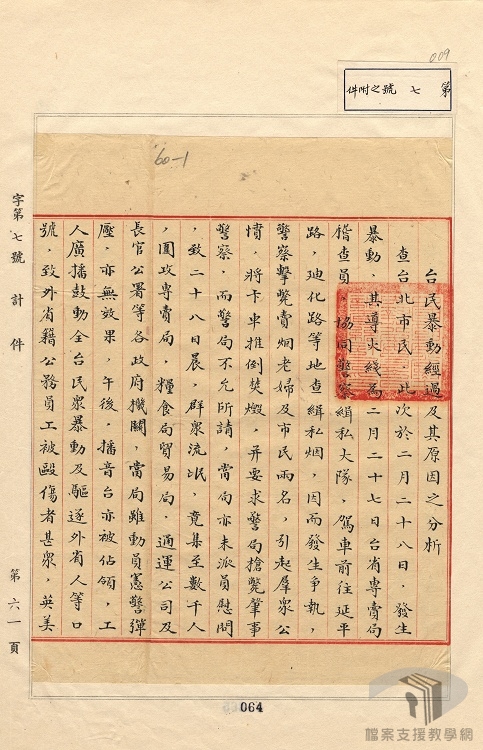 009
第七號之附件
60-1
台民暴動經過及其原因之分析
查台北市民，此次於二月二十八日，發生
暴動，其導火綫為二月二十七日台省專賣局
稽查員，協同警察緝私大隊，駕車前往延平
路，迪化路等地查緝私烟，因而發生爭執，
警察擊斃賣烟老婦及市民兩名，引起羣眾公
憤，將卡車推倒焚燬，并要求警局槍斃肇事
警察，而警局不允所請，當局亦未派員慰問
，致二十八日晨，群眾流氓，竟集至數千人
，圍攻專賣局，糧食局貿易局，通運公司及
長官公署等各政府機關，當局雖動員憲警彈
壓，亦無效果，午後，播音台亦被佔領，工
人廣播鼓動全台民眾暴動及驅逐外省人等口
號，致外省籍公務員工被毆傷者甚眾，英美
字第七號 計 件 第六一頁
064
檔案支援教學網